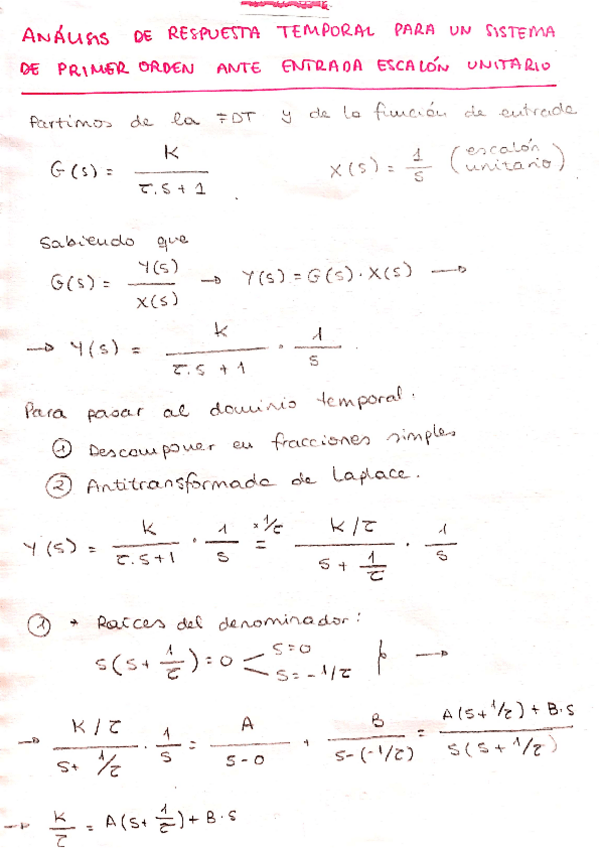 ANÁLISIS DE RESPUESTA TEMPORAL PARA UN SISTEMA
DE PRIMER ORDEN ANTE ENTRADA ESCALÓN UNITARIO
Partimos de la FDT y de la función de entrada
G(s) = K / (τ·s + 1)    X(s) = 1/s (escalón unitario)
Sabiendo que
G(s) = Y(s)/X(s) → Y(s) = G(s)·X(s) →
→ Y(s) = K / (τ·s + 1) · 1/s
Para pasar al dominio temporal.
① Descomponer en fracciones simples
② Antitransformada de Laplace.
Y(s) = K / (τ·s+1) · 1/s =(×1/τ) (K/τ) / (s + 1/τ) · 1/s
① * Raíces del denominador:
s(s + 1/τ) = 0 < s=0  s=-1/τ →
→ (K/τ) / (s + 1/τ) · 1/s = A / (s-0) + B / (s-(-1/τ)) = (A(s+1/τ) + B·s) / (s(s+1/τ))
→ K/τ = A(s + 1/τ) + B·s